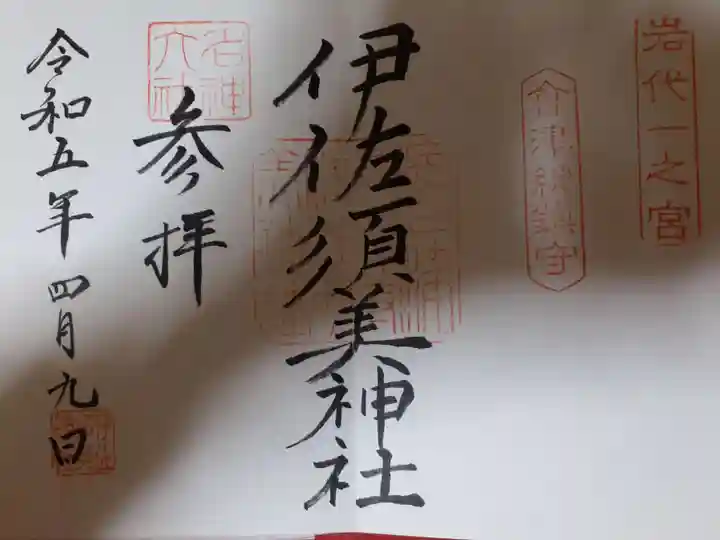 岩代一之宮
会津総鎮守
伊佐須美神社
名神大社
参拝
令和五年四月九日